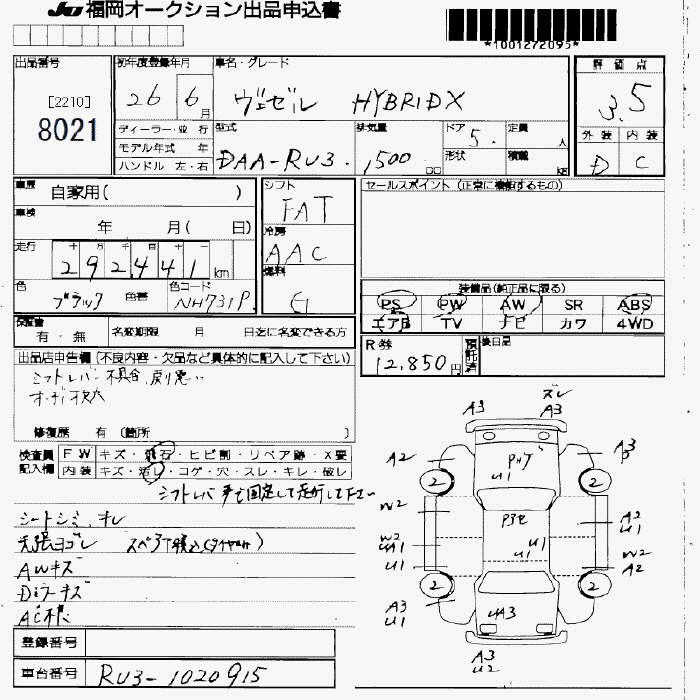 JU 福岡オークション出品申込書
*1001272095*
出品番号
[2210]
8021
初年度登録年月
26 6月
車名・グレード
ヴェゼル HYBRIDX
評価点
3.5
外装 内装
D C
ディーラー・並行
モデル年式 年
ハンドル 左・右
型式
DAA-RU3
排気量
1500
CC
ドア
5
形状
定員
人
積載
kg
車歴
自家用( )
車検
年 月( 日)
走行
十 万 千 百 十 一
292441 km
色
ブラック
色替
色コード
NH731P
シフト
FAT
冷房
AAC
燃料
G
セールスポイント(正常に機能するもの)
装備品(純正品に限る)
PS PW AW SR ABS
エアB TV ナビ カワ 4WD
保証書
有・無
名変期限 月 日迄に名変できる方
R券
12,850円
預託済
後日品
出品店申告欄(不良内容・欠品など具体的に記入して下さい)
シフトレバー不具合、戻り悪い
オーディオ欠
修復歴 有(箇所 )
検査員
記入欄
FW キズ・飛石・ヒビ割・リペア跡・X要
内装 キズ・汚レ・コゲ・穴・スレ・キレ・破レ
シフトレバー手で固定して走行して下さい
シートシミ、キレ
天張ヨゴレ
AWキズ
Dミラーキズ
登録番号
車台番号
RU3-1020915
ズレ
A3 A3
A2 A3
PH7
U1
2 2
W2 P3セ A2
U1
W2
U1 U1 W2
U1 A2
2 2
A3 UA3
U1
A3
U2